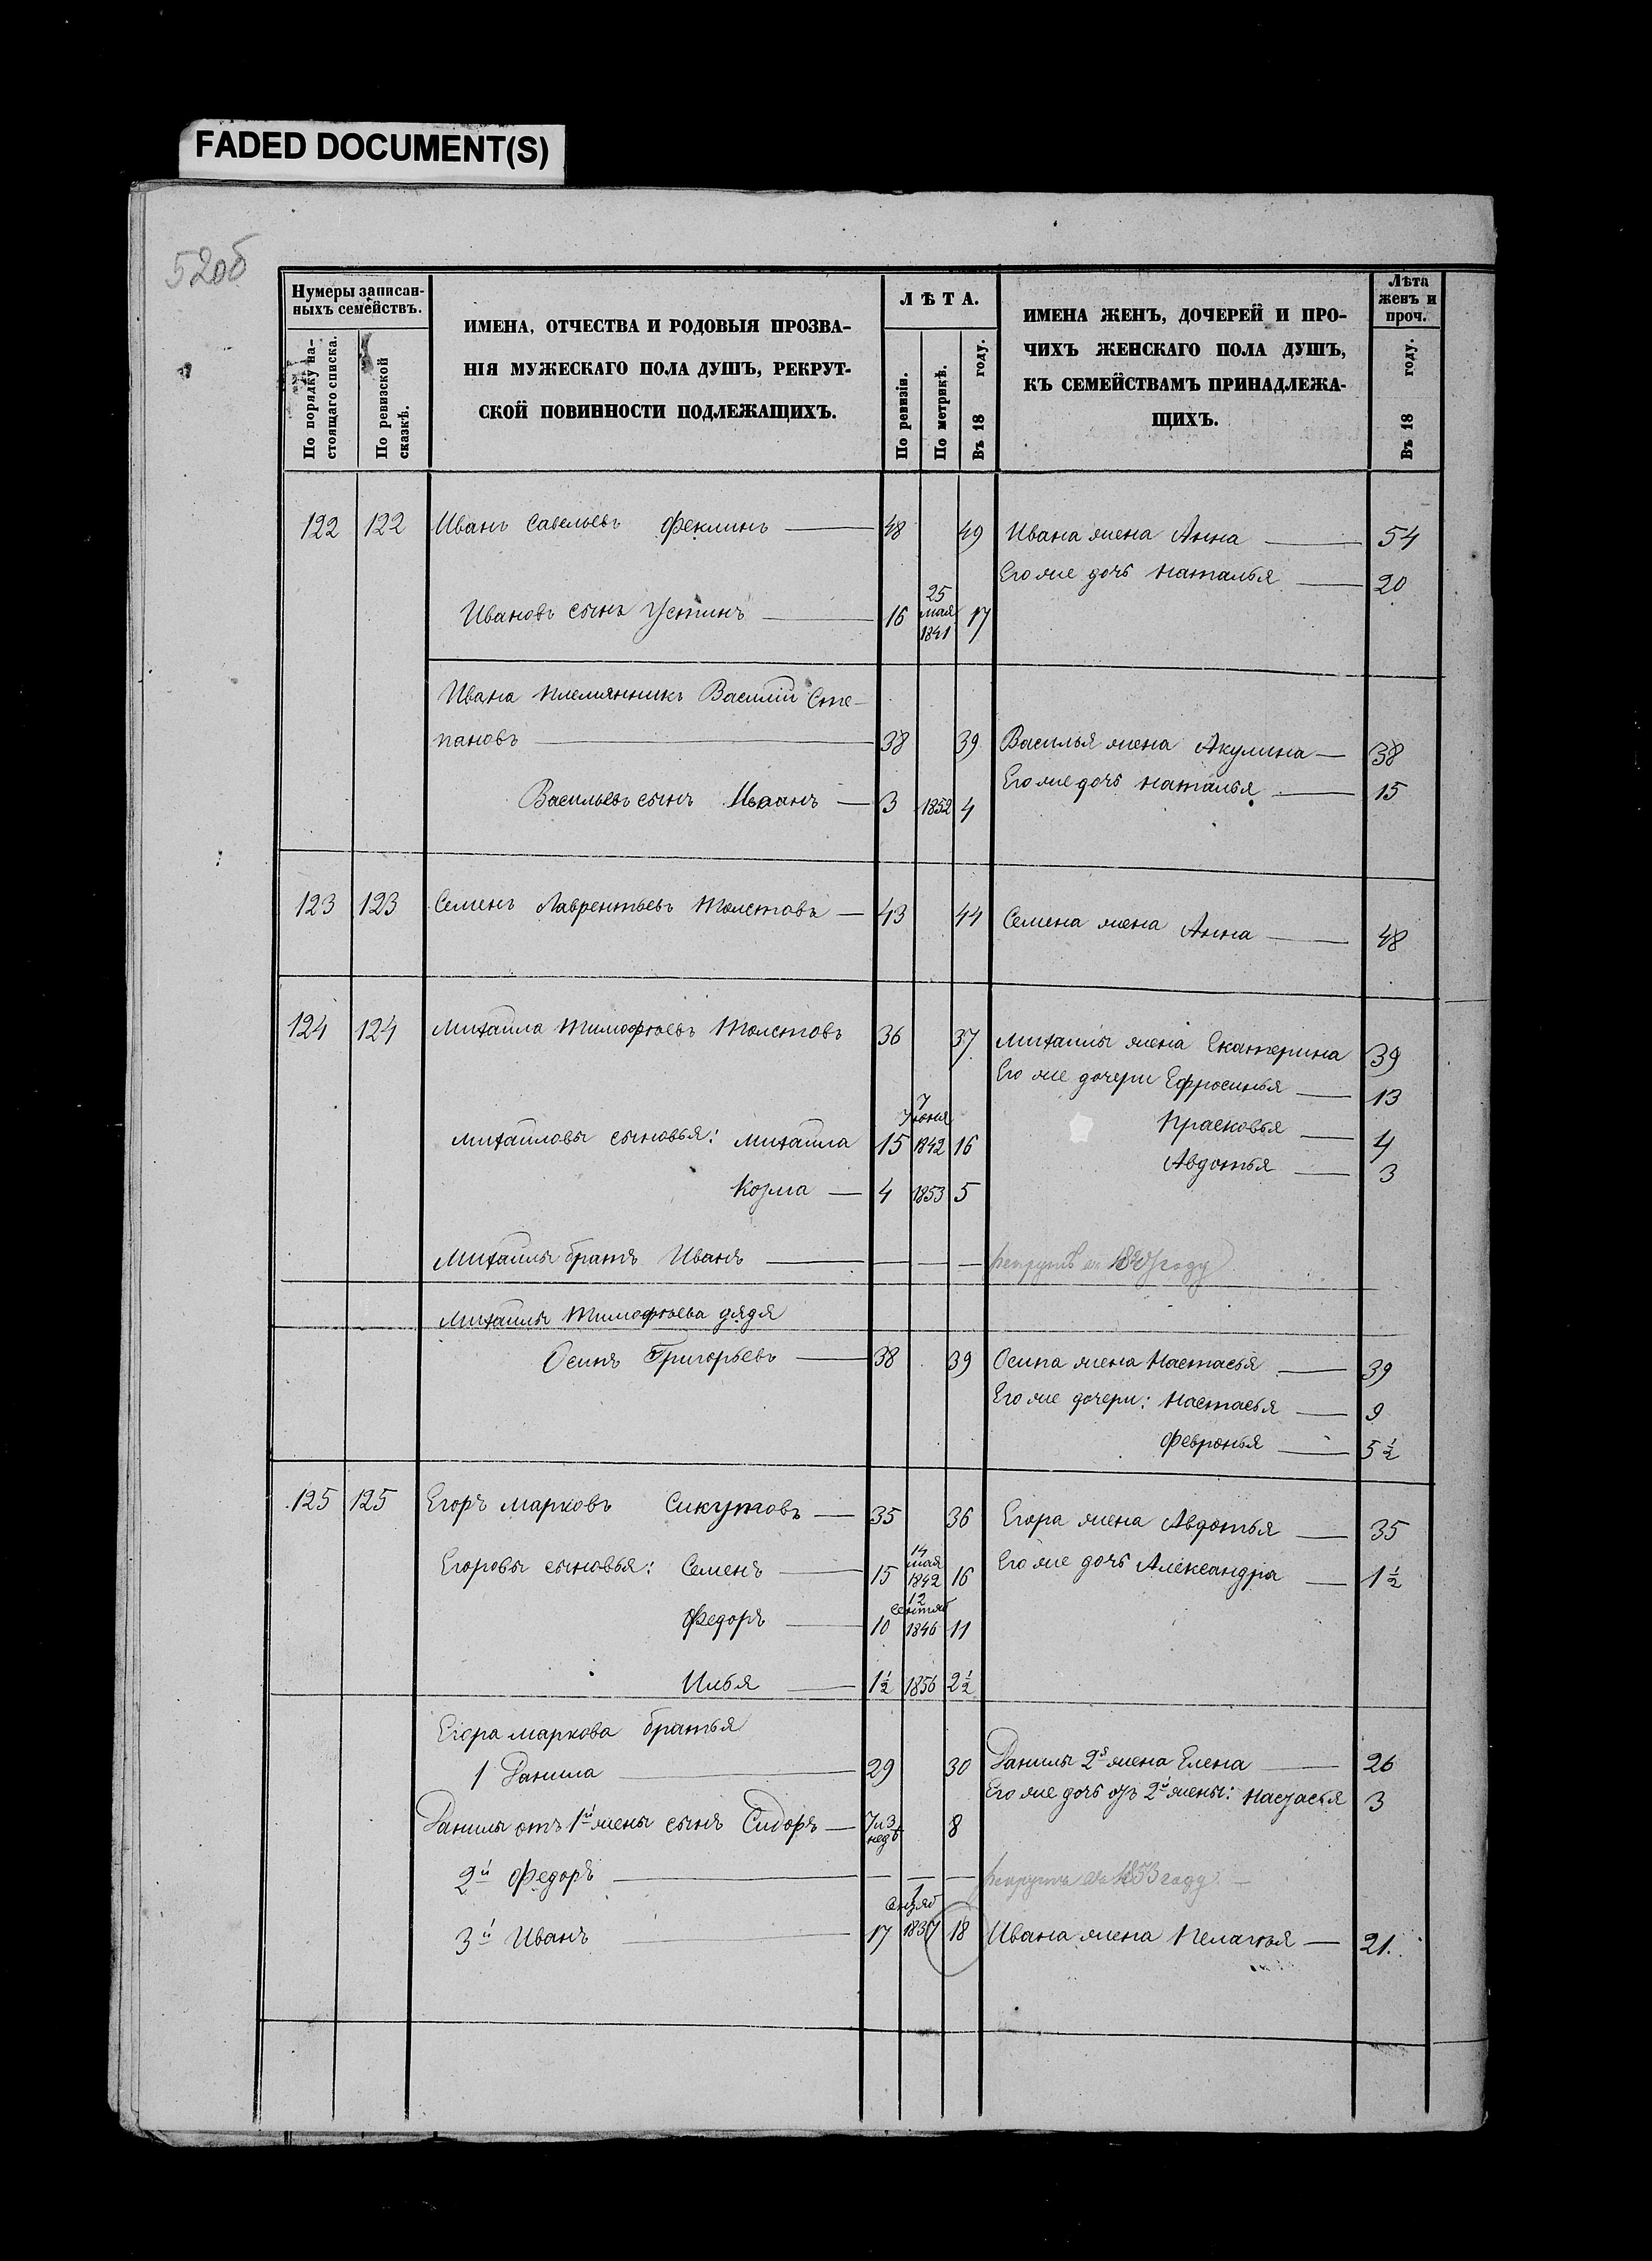 FADED DOCUMENT(S)
52об
Нумеры записан-
ныхъ семействъ.
По порядку на-
стоящаго списка.
По ревизской
сказкѣ.
ИМЕНА, ОТЧЕСТВА И РОДОВЫЯ ПРОЗВА-
НІЯ МУЖЕСКАГО ПОЛА ДУШЪ, РЕКРУТ-
СКОЙ ПОВИННОСТИ ПОДЛЕЖАЩИХЪ.
ЛѢТА.
По ревизіи.
По метрикѣ.
Въ 18 году.
ИМЕНА ЖЕНЪ, ДОЧЕРЕЙ И ПРО-
ЧИХЪ ЖЕНСКАГО ПОЛА ДУШЪ,
КЪ СЕМЕЙСТВАМЪ ПРИНАДЛЕЖА-
ЩИХЪ.
Лѣта
женъ и
проч.
Въ 18 году.
122 122 Иванъ Савельевъ Феклинъ — 48 49 Ивана жена Анна — 54
Его же дочь Наталья — 20
Ивановъ сынъ Устинъ — 16 25 мая 1841 17
Ивана племянникъ Василій Сте-
пановъ — 38 39 Василья жена Акулина — 38
Его же дочь Наталья — 15
Васильевъ сынъ Иванъ — 3 1852 4
123 123 Семенъ Лаврентьевъ Толстовъ — 43 44 Семена жена Анна — 48
124 124 Михайла Тимофѣевъ Толстовъ 36 37 Михайлы жена Екатерина 39
Его же дочери Ефросинья — 13
Прасковья — 4
Михайловы сыновья: Михайла 15 7 Июня 1842 16
Авдотья — 3
Козма — 4 1853 5
Михайлы братъ Иванъ — — — — рекрутъ въ году
Михайлы Тимофѣева дядя
Осипъ Григорьевъ — 38 39 Осипа жена Настасья — 39
Его же дочери: Настасья — 9
Февронья — 5 ½
125 125 Егоръ Марковъ Сикутовъ — 35 36 Егора жена Авдотья — 35
Егоровы сыновья: Семенъ — 15 14 мая 1842 16 Его же дочь Александра — 1 ½
Федоръ — 10 12 Сентяб 1846 11
Илья — 1½ 1856 2½
Егора Маркова братья
1 Данила — 29 30 Данилы 2я жена Елена — 26
Его же дочь отъ 2й жены: Настасья 3
Данилы отъ 1й жены сынъ Сидоръ — 7и3 недѣ 8
2й Федоръ — — — — рекрутъ въ 1853 году —
3й Иванъ — 17 1 1837 18 Ивана жена Пелагея — 21.